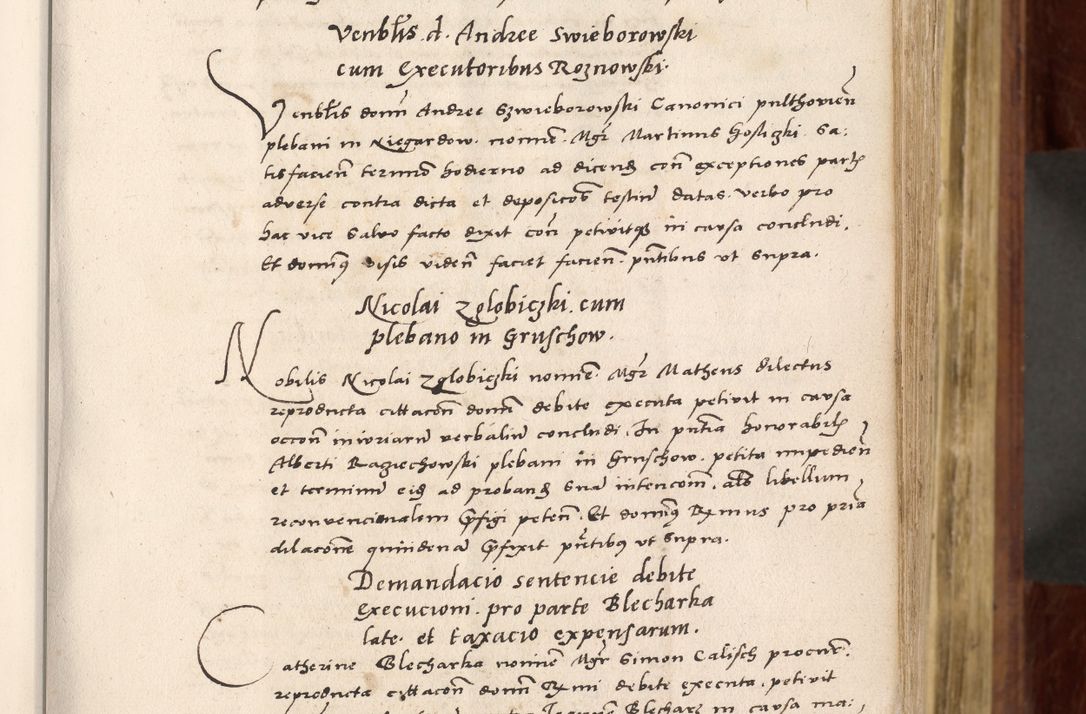 Venbłis. d. Andree Swieborowski
cum Executoribus Roznowski.
Venbłis domi Andree Szwieborowski Canonici pulthovien
plebani in Niegardow. nomine. Mgr Martinus Gosliczki. Sa-
tisfacien termino hodierno ad dicend con exceptiones part
adverse contra dicta et deposicões testium datas. verbo pro
hac vice salvo facto dixit con petivitque in causa concludi.
Et dominus visis viden faciet facien. pntibus ut supra.
Nicolai Zglobiczki. cum
plebano in Gruschow.
Nobilis Nicolai Zglobiczki nomine. Mgr Matheus dilectus
reproducta cittacon domi debite executa petivit in causa
occon iniuriarum verbalium concludi. In pntia honorabilis
Alberti Raziechowski plebani in Gruschow. petita impedien
et terminum eius ad proband sua intencom. als libellum
reconvencionalem pfigi peten. Et dominus Rmus pro pria
dilacone quindena pfixit pntibus ut supra.
Demandacio sentencie debite
execucioni. pro parte Blecharka
late. et taxacio expensarum.
Catherine Blecharka nomine Mgr Simon Calisch procur.
reproducta cittacon domi Rmi debite executa. petivit